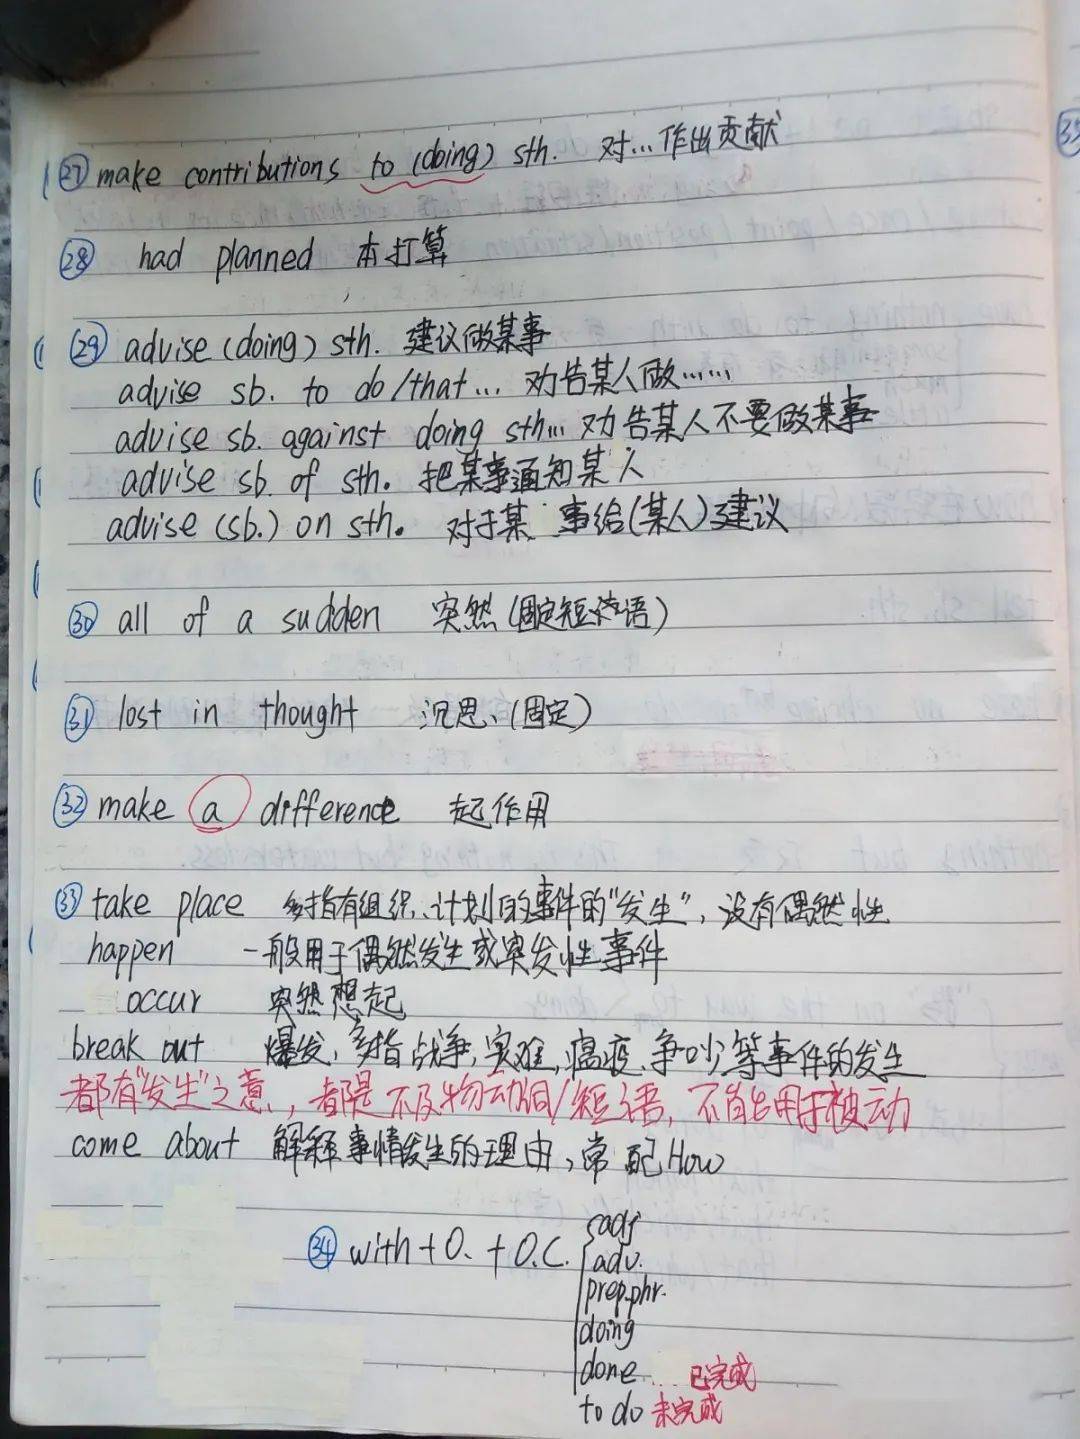 ㉗ make contributions to (doing) sth. 对...作出贡献
㉘ had planned 本打算
㉙ advise (doing) sth. 建议做某事
advise sb. to do/that... 劝告某人做……
advise sb. against doing sth... 劝告某人不要做某事
advise sb. of sth. 把某事通知某人
advise (sb.) on sth. 对于某事给(某人)建议
㉚ all of a sudden 突然(固定短语)
㉛ lost in thought 沉思、(固定)
㉜ make a difference 起作用
㉝ take place 多指有组织、计划的事件的"发生"，没有偶然性
happen 一般用于偶然发生或突发性事件
occur 突然想起
break out 爆发，多指战争，灾难，瘟疫、争吵等事件的发生
都有"发生"之意，都是不及物动词/短语，不能用于被动
come about 解释事情发生的理由，常配How
㉞ with + O. + O.C. adj
adv.
prep.phr.
doing
done 已完成
to do 未完成